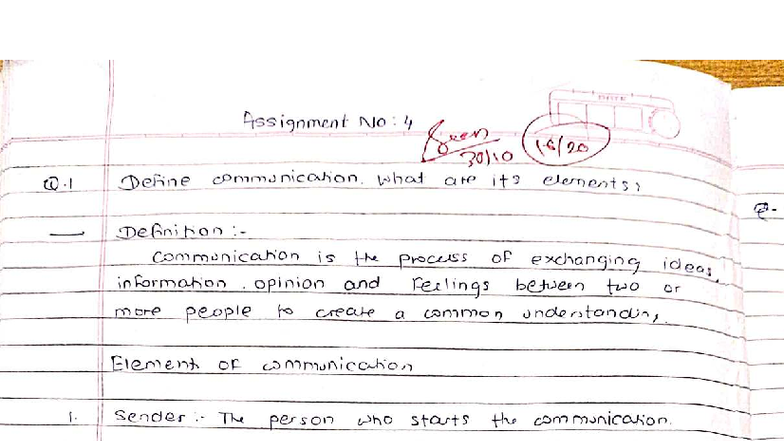 Assignment No : 4
Seen
30/10
16/20
Q.1 Define communication. What are its elements?
Definition :-
Communication is the process of exchanging ideas,
information, opinion and feelings between two or
more people to create a common understanding,
Element of communication
1. Sender :- The person who starts the communication.
Q-